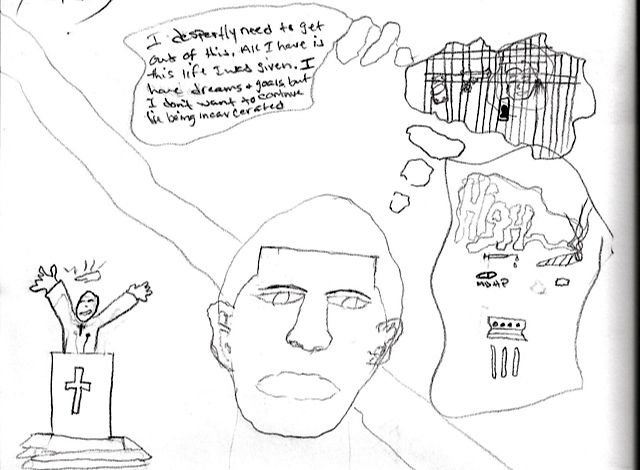 I despertly need to get
out of this. All I have is
this life I was given. I
have dreams & goals but
I don't want to continue
being incarcerated
HIGH